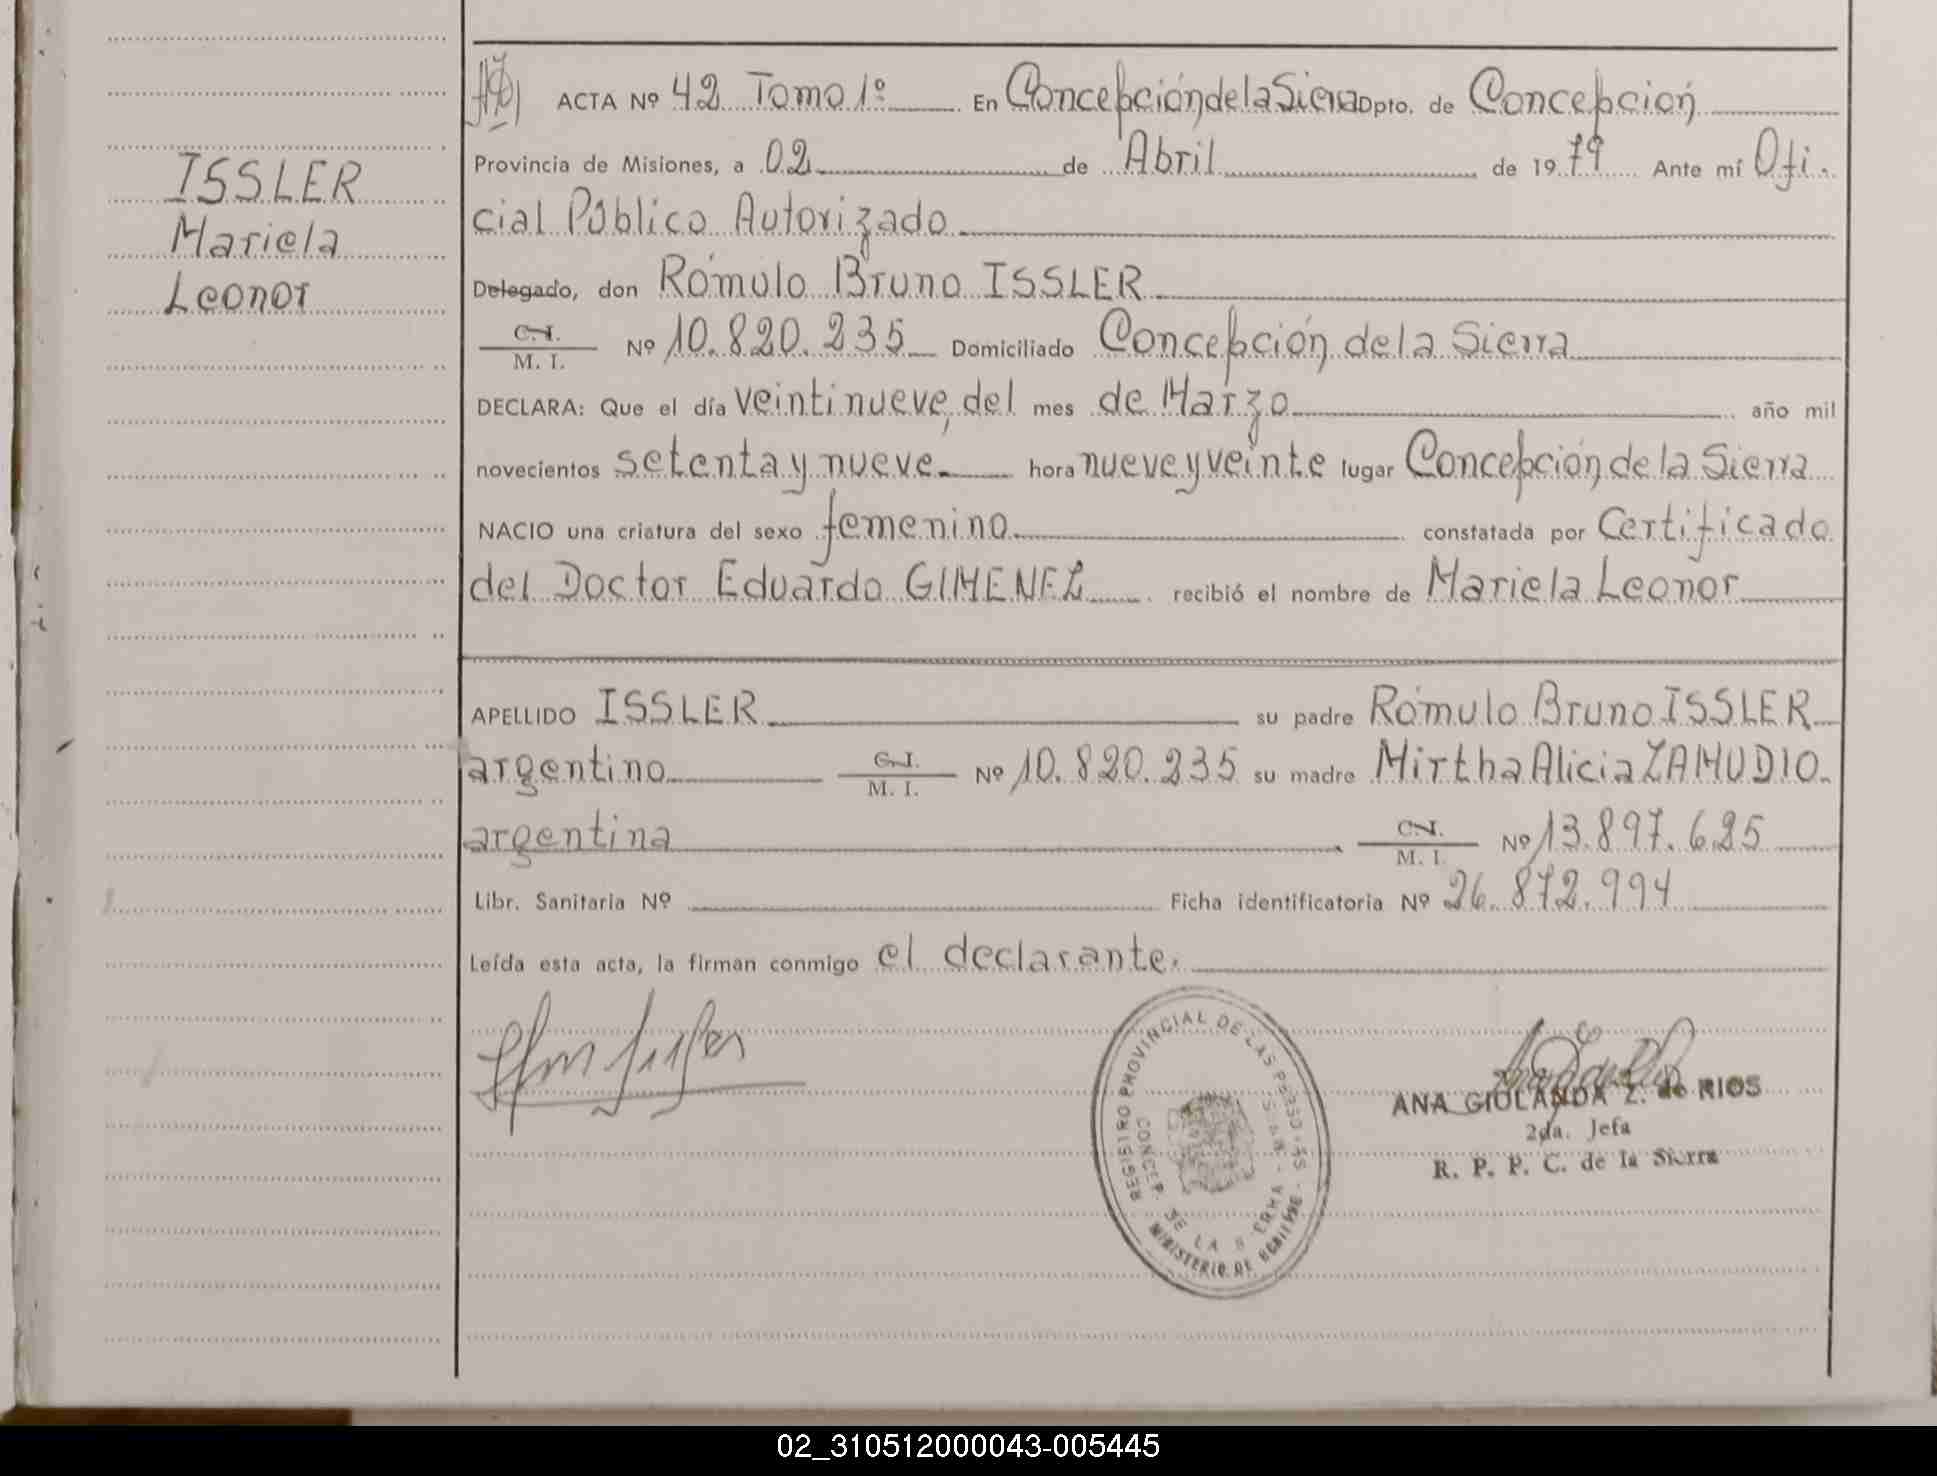 ISSLER
Mariela
Leonor
ACTA Nº 42 Tomo 1º En Concepción de la Sierra Dpto. de Concepción
Provincia de Misiones, a 02 de Abril de 1979 Ante mí Ofi.
cial Público Autorizado
Delegado, don Rómulo Bruno ISSLER
C. I.
M. I. Nº 10.820.235 Domiciliado Concepción de la Sierra
DECLARA: Que el día veintinueve, del mes de Marzo año mil
novecientos setenta y nueve. hora nueve y veinte lugar Concepción de la Sierra
NACIO una criatura del sexo femenino constatada por Certificado
del Doctor Eduardo GIMENEZ recibió el nombre de Mariela Leonor
APELLIDO ISSLER su padre Rómulo Bruno ISSLER
argentino C. I. M. I. Nº 10.820.235 su madre Mirtha Alicia ZAMUDIO.
argentina C. I. M. I. Nº 13.897.625
Libr. Sanitaria Nº Ficha identificatoria Nº 26.872.994
Leída esta acta, la firman conmigo el declarante.
REGISTRO PROVINCIAL DE LAS PERSONAS
CONCEP. DE LA SIERRA
MINISTERIO DE GOBIERNO
ANA GIOLANDA Z. de RIOS
2da. Jefa
R. P. P. C. de la Sierra
02_310512000043-005445